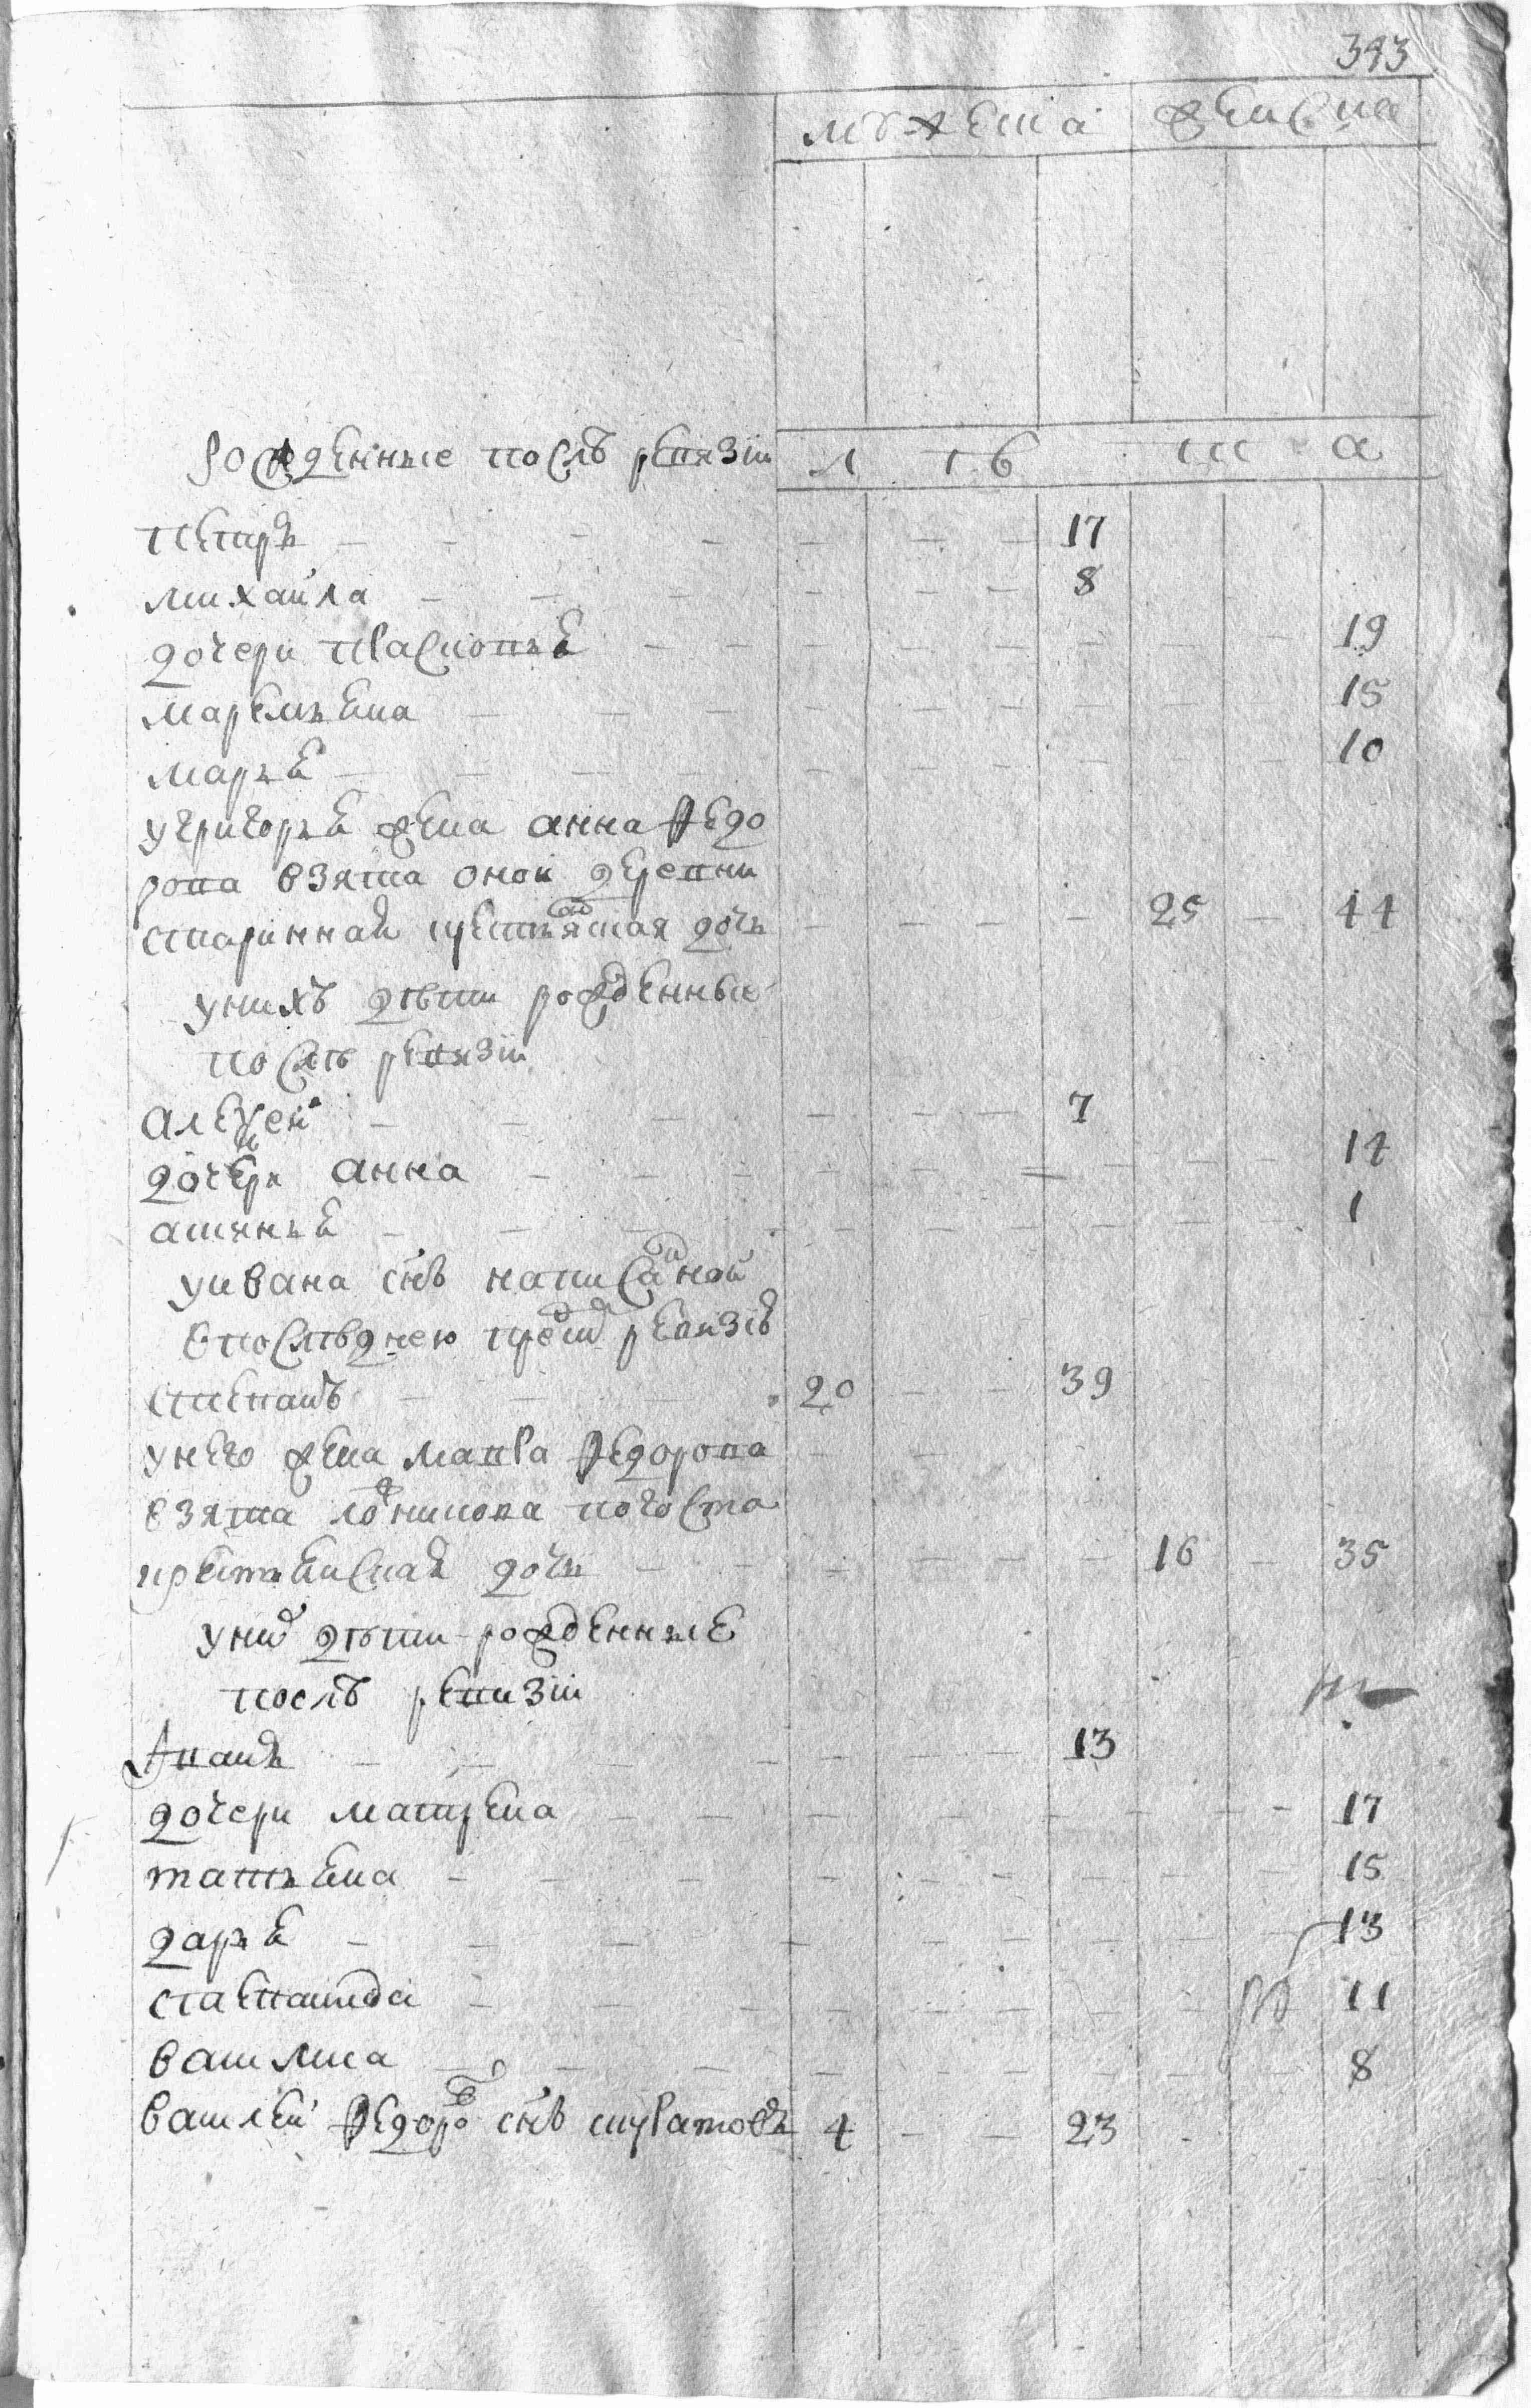 393
мужеска женска
рожденные послѣ ревизіи л ѣ т а
петръ — 17
михаила — 8
дочери прасковья — 19
маремьяна — 15
марья — 10
у григорья жена анна федо
рова взята оной деревни
старинная крестьянская дочь — 25 — 44
у нихъ дѣти рожденные
послѣ ревизіи
алексей — 7
дочери анна — 14
аксинья — 1
у ивана снъ написанной
в последнею пред ревизіѣ
степанъ 20 — 39
у него жена мавра федорова
взята погоста
крестьянская дочь — 16 — 35
у них дѣти рожденные
послѣ ревизіи
иванъ — 13
дочери матрена — 17
татьяна — 15
дарья — 13
степанида — 11
василиса — 8
василей федоров снъ 4 — 23